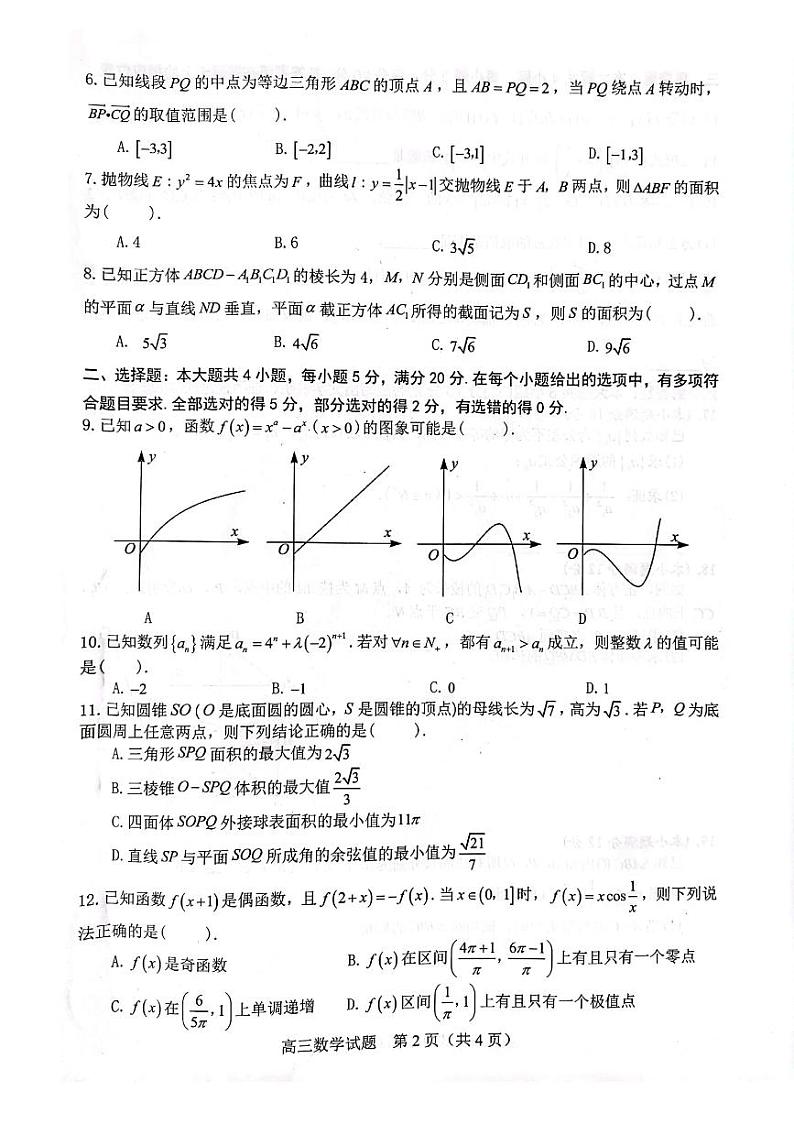 6. 已知线段 PQ 的中点为等边三角形 ABC 的顶点 A，且 AB = PQ = 2，当 PQ 绕点 A 转动时，
$\overline{BP}•\overline{CQ}$ 的取值范围是(    ).
A. [−3,3]    B. [−2,2]    C. [−3,1]    D. [−1,3]
7. 抛物线 E : y² = 4x 的焦点为 F，曲线 l : y = $\frac{1}{2}$|x−1| 交抛物线 E 于 A，B 两点，则 ΔABF 的面积
为(    ).
A. 4    B. 6    C. 3√5    D. 8
8. 已知正方体 ABCD − A₁B₁C₁D₁ 的棱长为 4，M，N 分别是侧面 CD₁ 和侧面 BC₁ 的中心，过点 M
的平面 α 与直线 ND 垂直，平面 α 截正方体 AC₁ 所得的截面记为 S，则 S 的面积为(    ).
A. 5√3    B. 4√6    C. 7√6    D. 9√6
二、选择题：本大题共 4 小题，每小题 5 分，满分 20 分. 在每个小题给出的选项中，有多项符
合题目要求. 全部选对的得 5 分，部分选对的得 2 分，有选错的得 0 分.
9. 已知 a > 0，函数 f(x) = xᵃ − aˣ (x > 0) 的图象可能是(    ).
y    y    y    y
x    x    x    x
O    O    O    O
A    B    C    D
10. 已知数列 {aₙ} 满足 aₙ = 4ⁿ + λ(−2)ⁿ⁺¹. 若对 ∀n ∈ N₊，都有 aₙ₊₁ > aₙ 成立，则整数 λ 的值可能
是(    ).
A. −2    B. −1    C. 0    D. 1
11. 已知圆锥 SO (O 是底面圆的圆心，S 是圆锥的顶点)的母线长为 √7，高为 √3. 若 P，Q 为底
面圆周上任意两点，则下列结论正确的是(    ).
A. 三角形 SPQ 面积的最大值为 2√3
B. 三棱锥 O − SPQ 体积的最大值 $\frac{2\sqrt{3}}{3}$
C. 四面体 SOPQ 外接球表面积的最小值为 11π
D. 直线 SP 与平面 SOQ 所成角的余弦值的最小值为 $\frac{\sqrt{21}}{7}$
12. 已知函数 f(x+1) 是偶函数，且 f(2+x) = −f(x). 当 x ∈ (0, 1] 时，f(x) = x cos $\frac{1}{x}$，则下列说
法正确的是(    ).
A. f(x) 是奇函数    B. f(x) 在区间 $\left(\frac{4π+1}{π}, \frac{6π−1}{π}\right)$ 上有且只有一个零点
C. f(x) 在 $\left(\frac{6}{5π}, 1\right)$ 上单调递增    D. f(x) 区间 $\left(\frac{1}{π}, 1\right)$ 上有且只有一个极值点
高三数学试题    第 2 页（共 4 页）